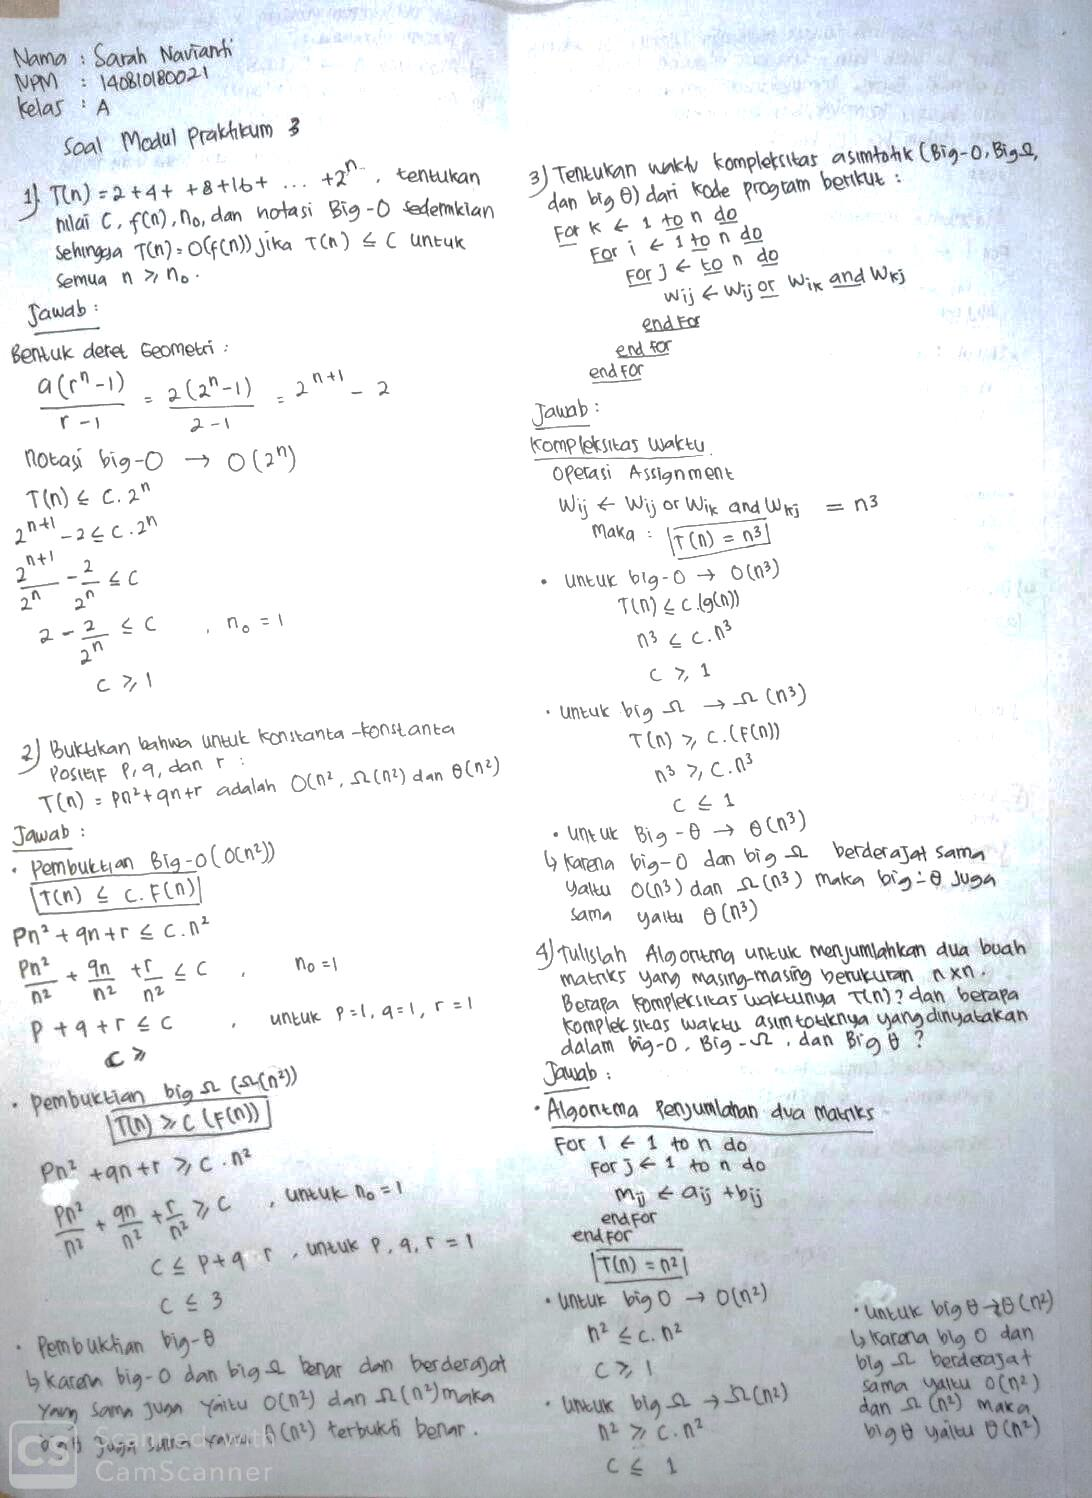 Nama : Sarah Navianti
NPM : 140810180021
Kelas : A
Soal Modul Praktikum 3
1) T(n) = 2 + 4 + + 8 + 16 + ... + 2ⁿ , tentukan
nilai C, f(n), n₀, dan notasi Big-O sedemikian
sehingga T(n) = O(f(n)) jika T(n) ≤ C untuk
semua n ≥ n₀.
Jawab :
Bentuk deret Geometri :
a(rⁿ-1)/r-1 = 2(2ⁿ-1)/2-1 = 2ⁿ⁺¹ - 2
Notasi big-O → O(2ⁿ)
T(n) ≤ C. 2ⁿ
2ⁿ⁺¹ - 2 ≤ C. 2ⁿ
2ⁿ⁺¹/2ⁿ - 2/2ⁿ ≤ C
2 - 2/2ⁿ ≤ C , n₀ = 1
C ≥ 1
2) Buktikan bahwa untuk konstanta-konstanta
Positif P, q, dan r :
T(n) = Pn² + qn + r adalah O(n², Ω(n²) dan θ(n²)
Jawab :
• Pembuktian Big-O (O(n²))
T(n) ≤ C. F(n)
Pn² + qn + r ≤ C. n²
Pn²/n² + qn/n² + r/n² ≤ C , n₀ = 1
P + q + r ≤ C , untuk P=1, q=1, r=1
C ≥
• Pembuktian big Ω (Ω(n²))
T(n) ≥ C (F(n))
Pn² + qn + r ≥ C. n²
Pn²/n² + qn/n² + r/n² ≥ C , untuk n₀ = 1
C ≤ P + q r , untuk P, q, r = 1
C ≤ 3
• Pembuktian big-θ
↳ Karena big-O dan big Ω benar dan berderajat
yang sama juga yaitu O(n²) dan Ω(n²) maka
juga sama θ(n²) terbukti benar.
3) Tentukan waktu kompleksitas asimtotik (Big-O, Big Ω,
dan big θ) dari kode program berikut :
For k ← 1 to n do
For i ← 1 to n do
For j ← to n do
Wij ← Wij or Wik and Wkj
end for
end for
end for
Jawab :
Kompleksitas waktu
Operasi Assignment
Wij ← Wij or Wik and Wkj = n3
Maka : T(n) = n3
• Untuk big-O → O(n³)
T(n) ≤ C.(g(n))
n³ ≤ C. n³
C ≥ 1
• Untuk big Ω → Ω (n³)
T(n) ≥ C. (F(n))
n³ ≥ C. n³
C ≤ 1
• Untuk Big-θ → θ(n³)
↳ Karena big-O dan big Ω berderajat sama
yaitu O(n³) dan Ω(n³) maka big-θ juga
sama yaitu θ(n³)
4) Tulislah Algoritma untuk menjumlahkan dua buah
matriks yang masing-masing berukuran nxn.
Berapa kompleksitas waktunya T(n)? dan berapa
kompleksitas waktu asimtotiknya yang dinyatakan
dalam big-O, Big-Ω, dan Big θ ?
Jawab :
• Algoritma Penjumlahan dua Matriks
For i ← 1 to n do
For j ← 1 to n do
mij ← aij + bij
end for
end for
T(n) = n²
• Untuk big O → O(n²)
n² ≤ C. n²
C ≥ 1
• Untuk big Ω → Ω(n²)
n² ≥ C. n²
C ≤ 1
• Untuk big θ → θ(n²)
↳ Karena big O dan
big Ω berderajat
sama yaitu O(n²)
dan Ω (n²) maka
big θ yaitu θ(n²)
CS Scanned with
CamScanner